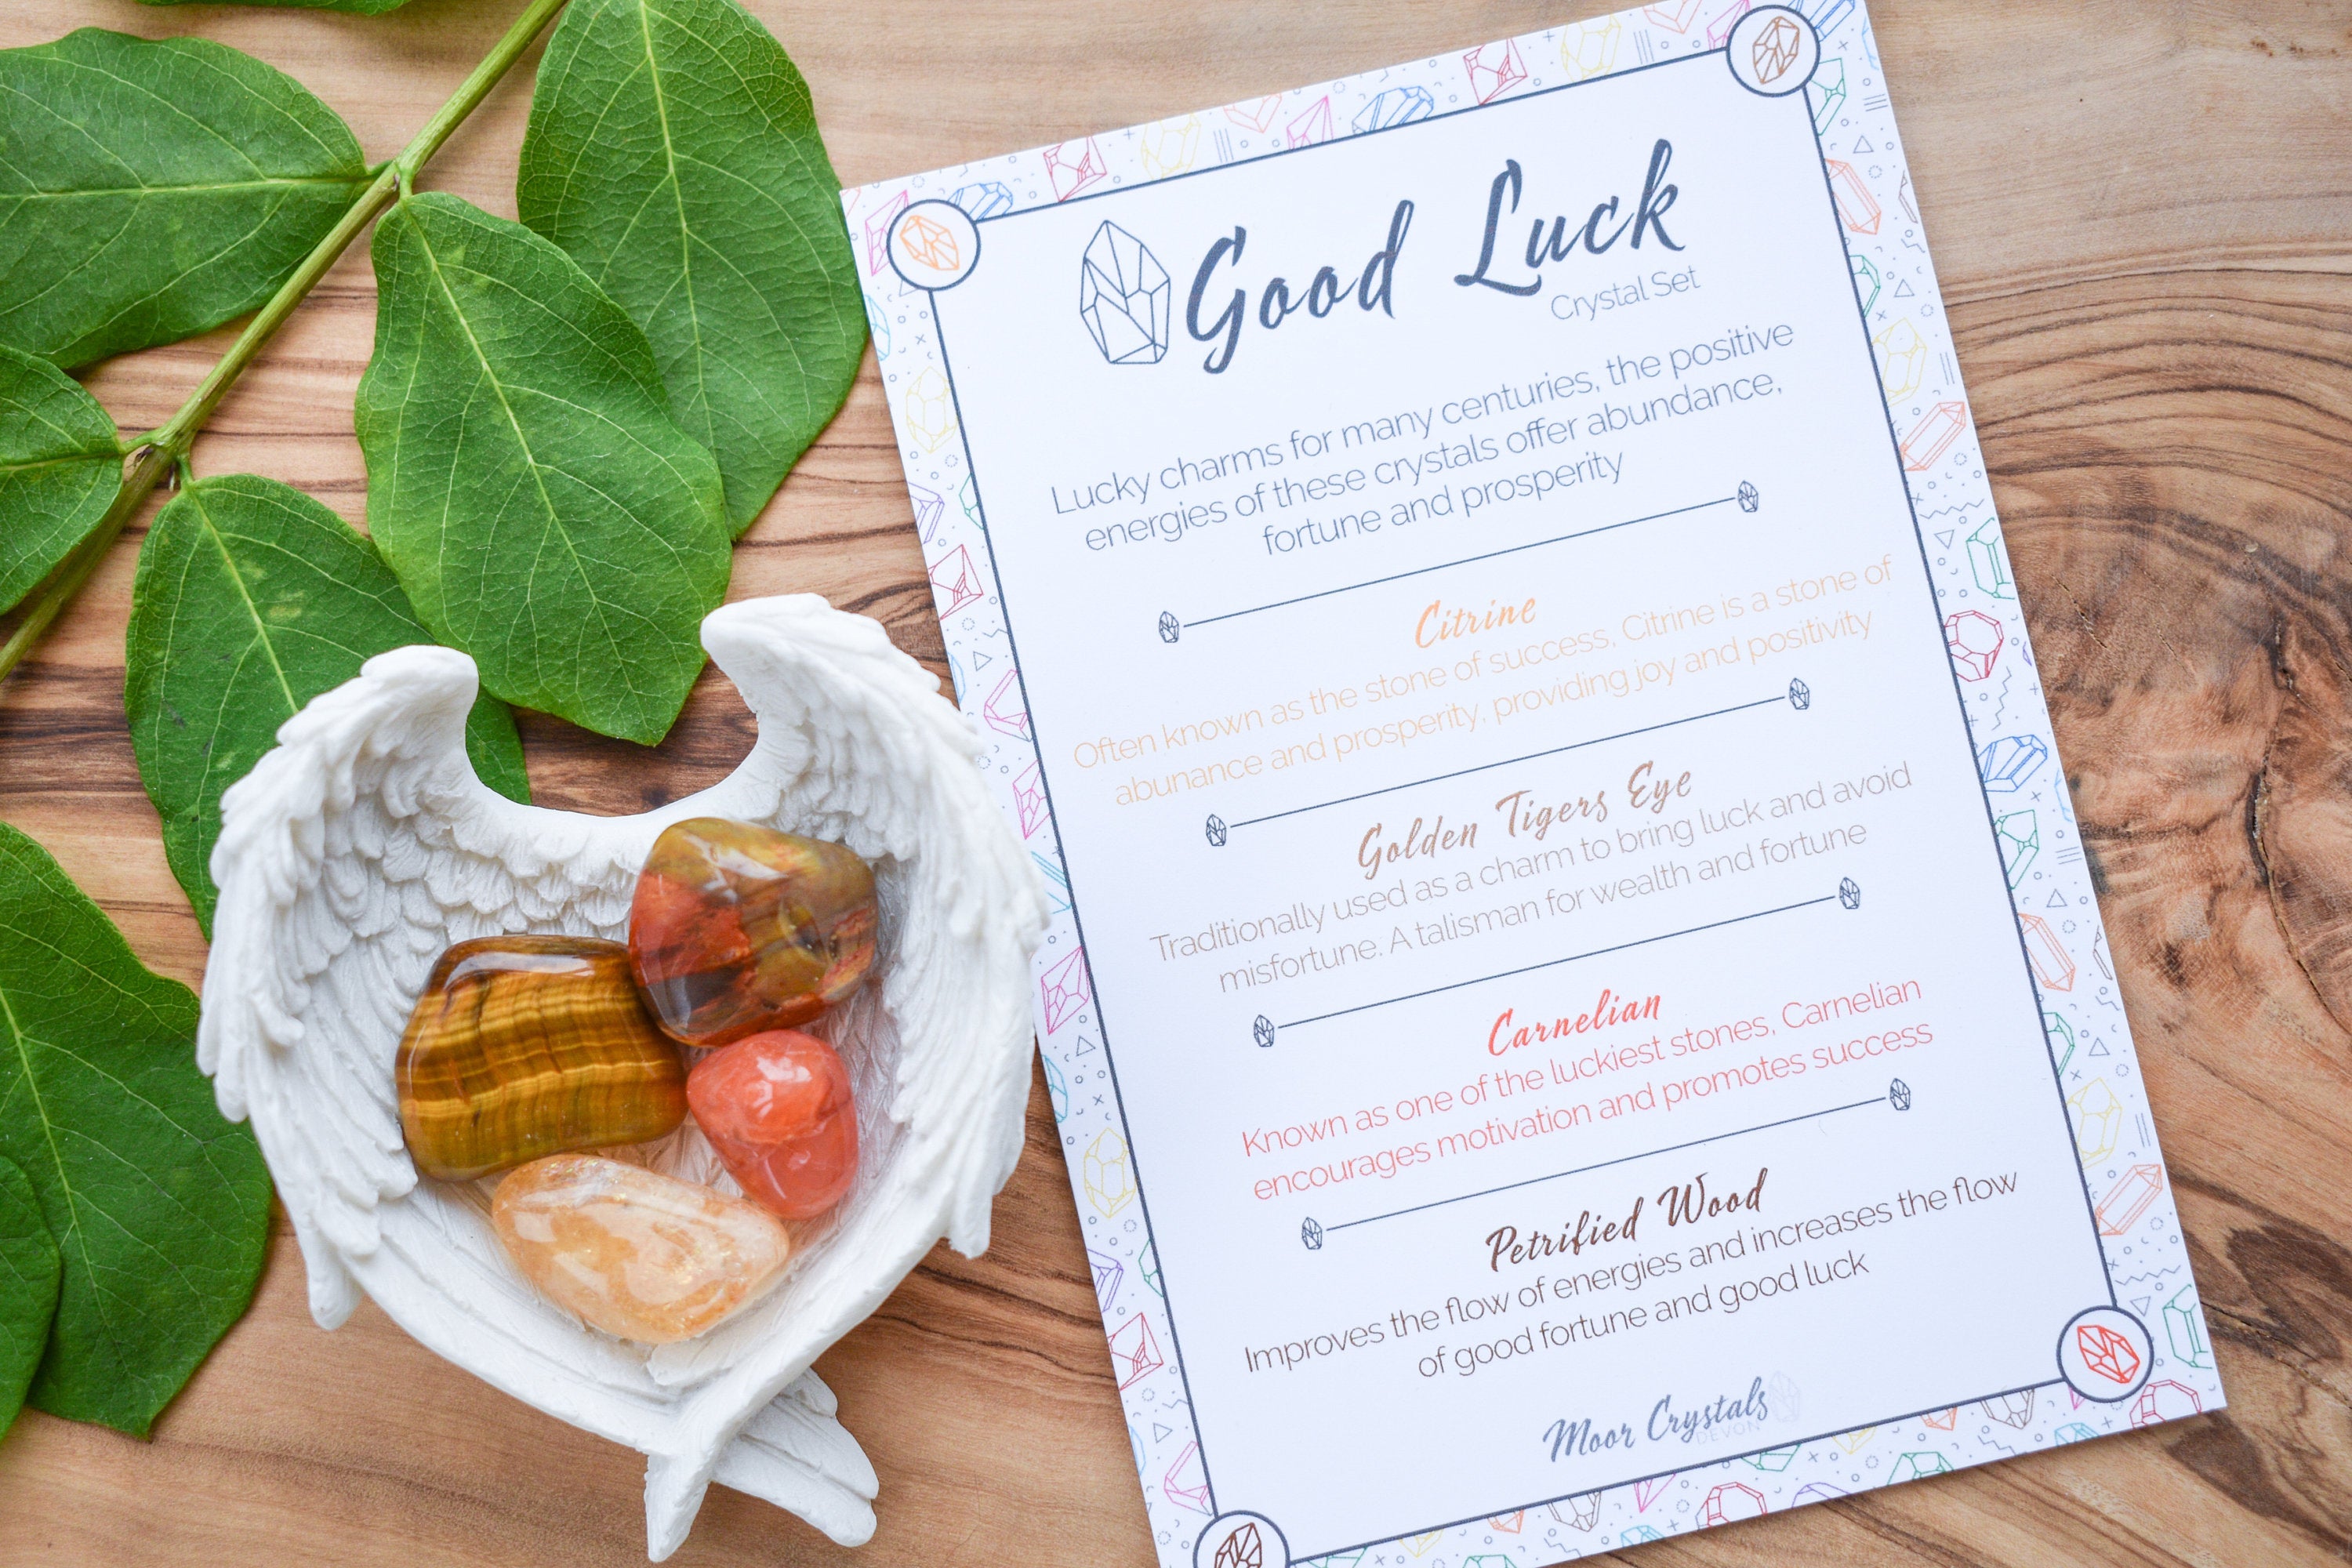 Good Luck
Crystal Set
Lucky charms for many centuries, the positive
energies of these crystals offer abundance,
fortune and prosperity
Citrine
Often known as the stone of success, Citrine is a stone of
abunance and prosperity, providing joy and positivity
Golden Tigers Eye
Traditionally used as a charm to bring luck and avoid
misfortune. A talisman for wealth and fortune
Carnelian
Known as one of the luckiest stones, Carnelian
encourages motivation and promotes success
Petrified Wood
Improves the flow of energies and increases the flow
of good fortune and good luck
Moor Crystals
DEVON